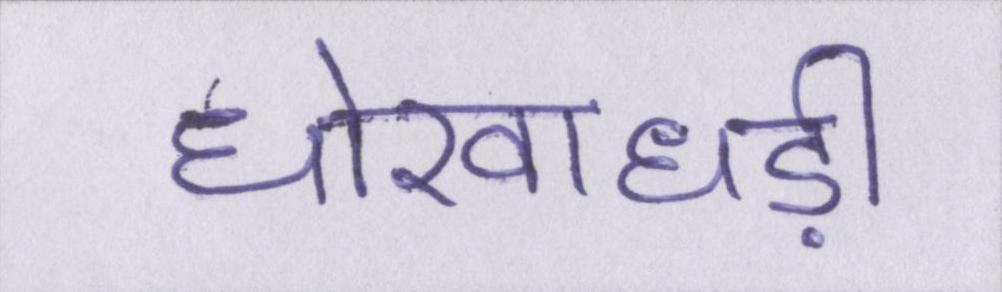 धोखाधड़ी